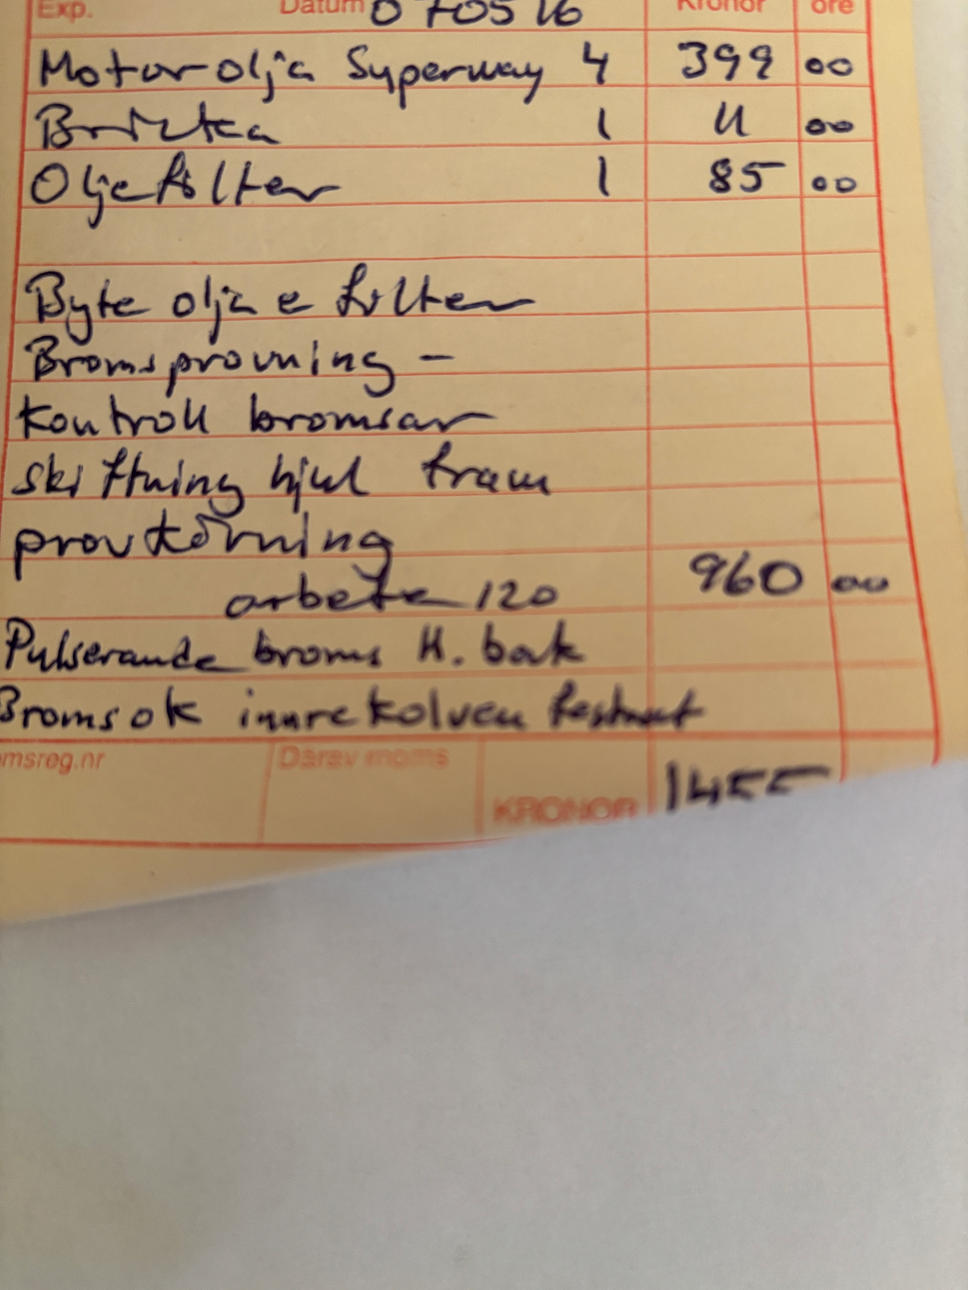 Exp. Datum 070516 Kronor öre
Motorolja Superway 4 399 00
Bricka 1 11 00
Oljefilter 1 85 00
Byte olja e filter
Bromsprovning -
Kontroll bromsar
skiftning hjul fram
provkörning
arbete 120 960 00
Pulserande broms H. bak
Bromsok inre kolven fastnat
msreg.nr Därav moms KRONOR 1455